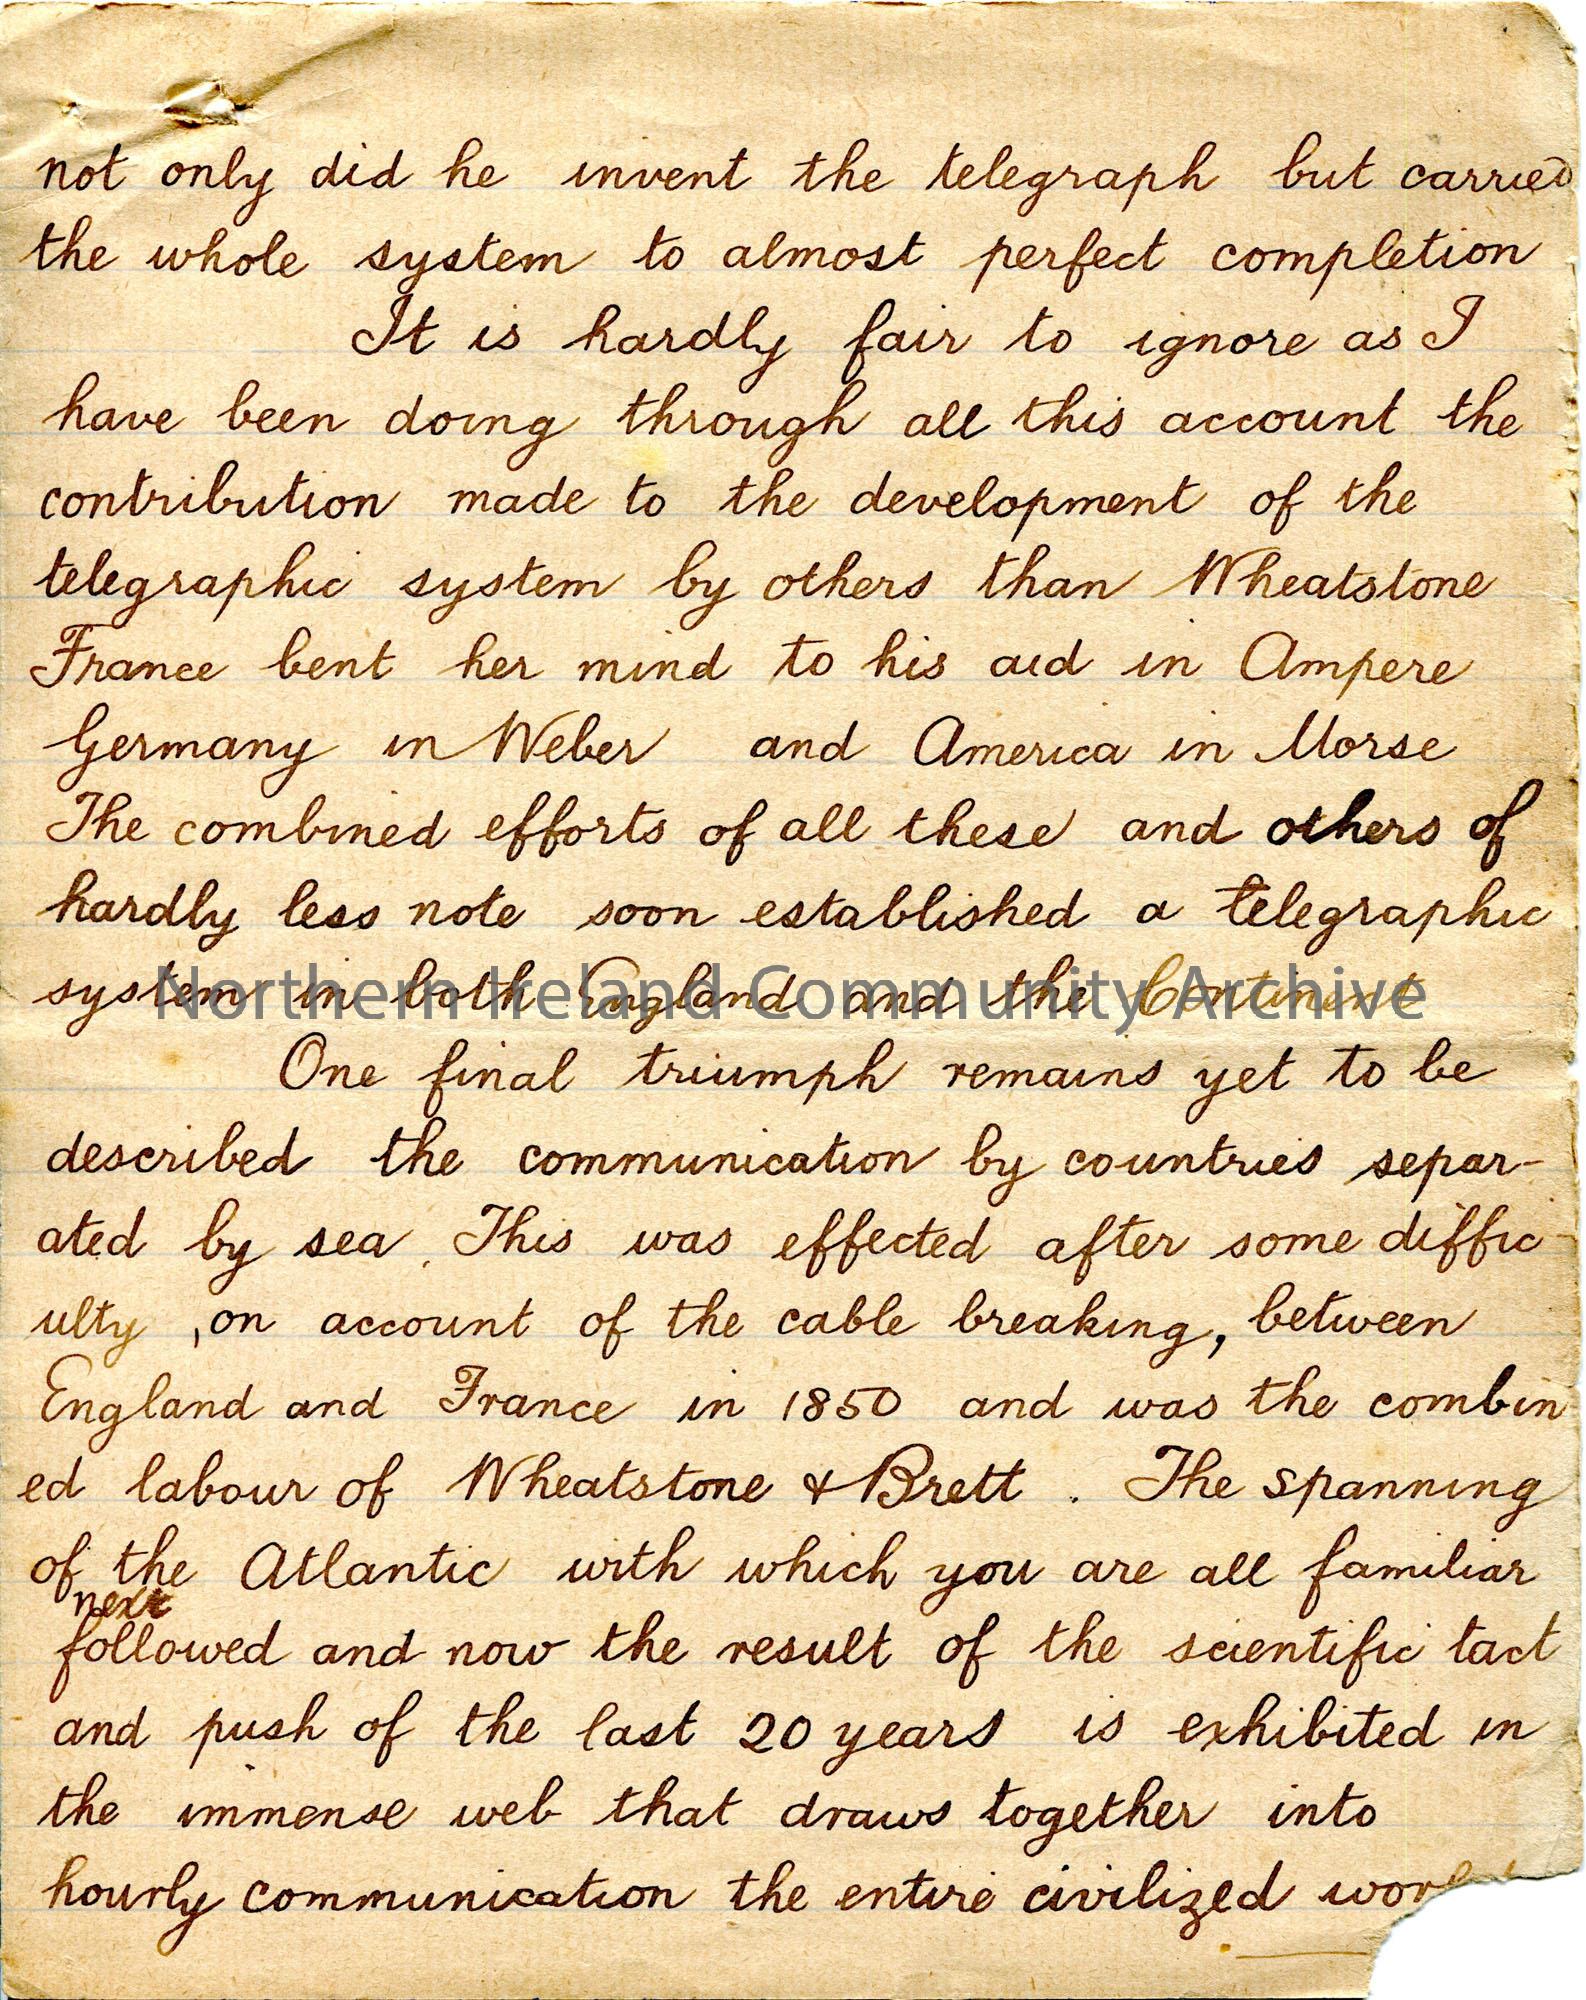 not only did he invent the telegraph but carried
the whole system to almost perfect completion
It is hardly fair to ignore as I
have been doing through all this account the
contribution made to the development of the
telegraphic system by others than Wheatstone
France bent her mind to his aid in Ampere
Germany in Weber and America in Morse
The combined efforts of all these and others of
hardly less note soon established a telegraphic
system in both England and the Continent
Northern Ireland Community Archive
One final triumph remains yet to be
described the communication by countries separ-
ated by sea. This was effected after some diffic-
ulty, on account of the cable breaking, between
England and France in 1850 and was the combin
ed labour of Wheatstone & Brett. The spanning
of the Atlantic with which you are all familiar
next
followed and now the result of the scientific tact
and push of the last 20 years is exhibited in
the immense web that draws together into
hourly communication the entire civilized